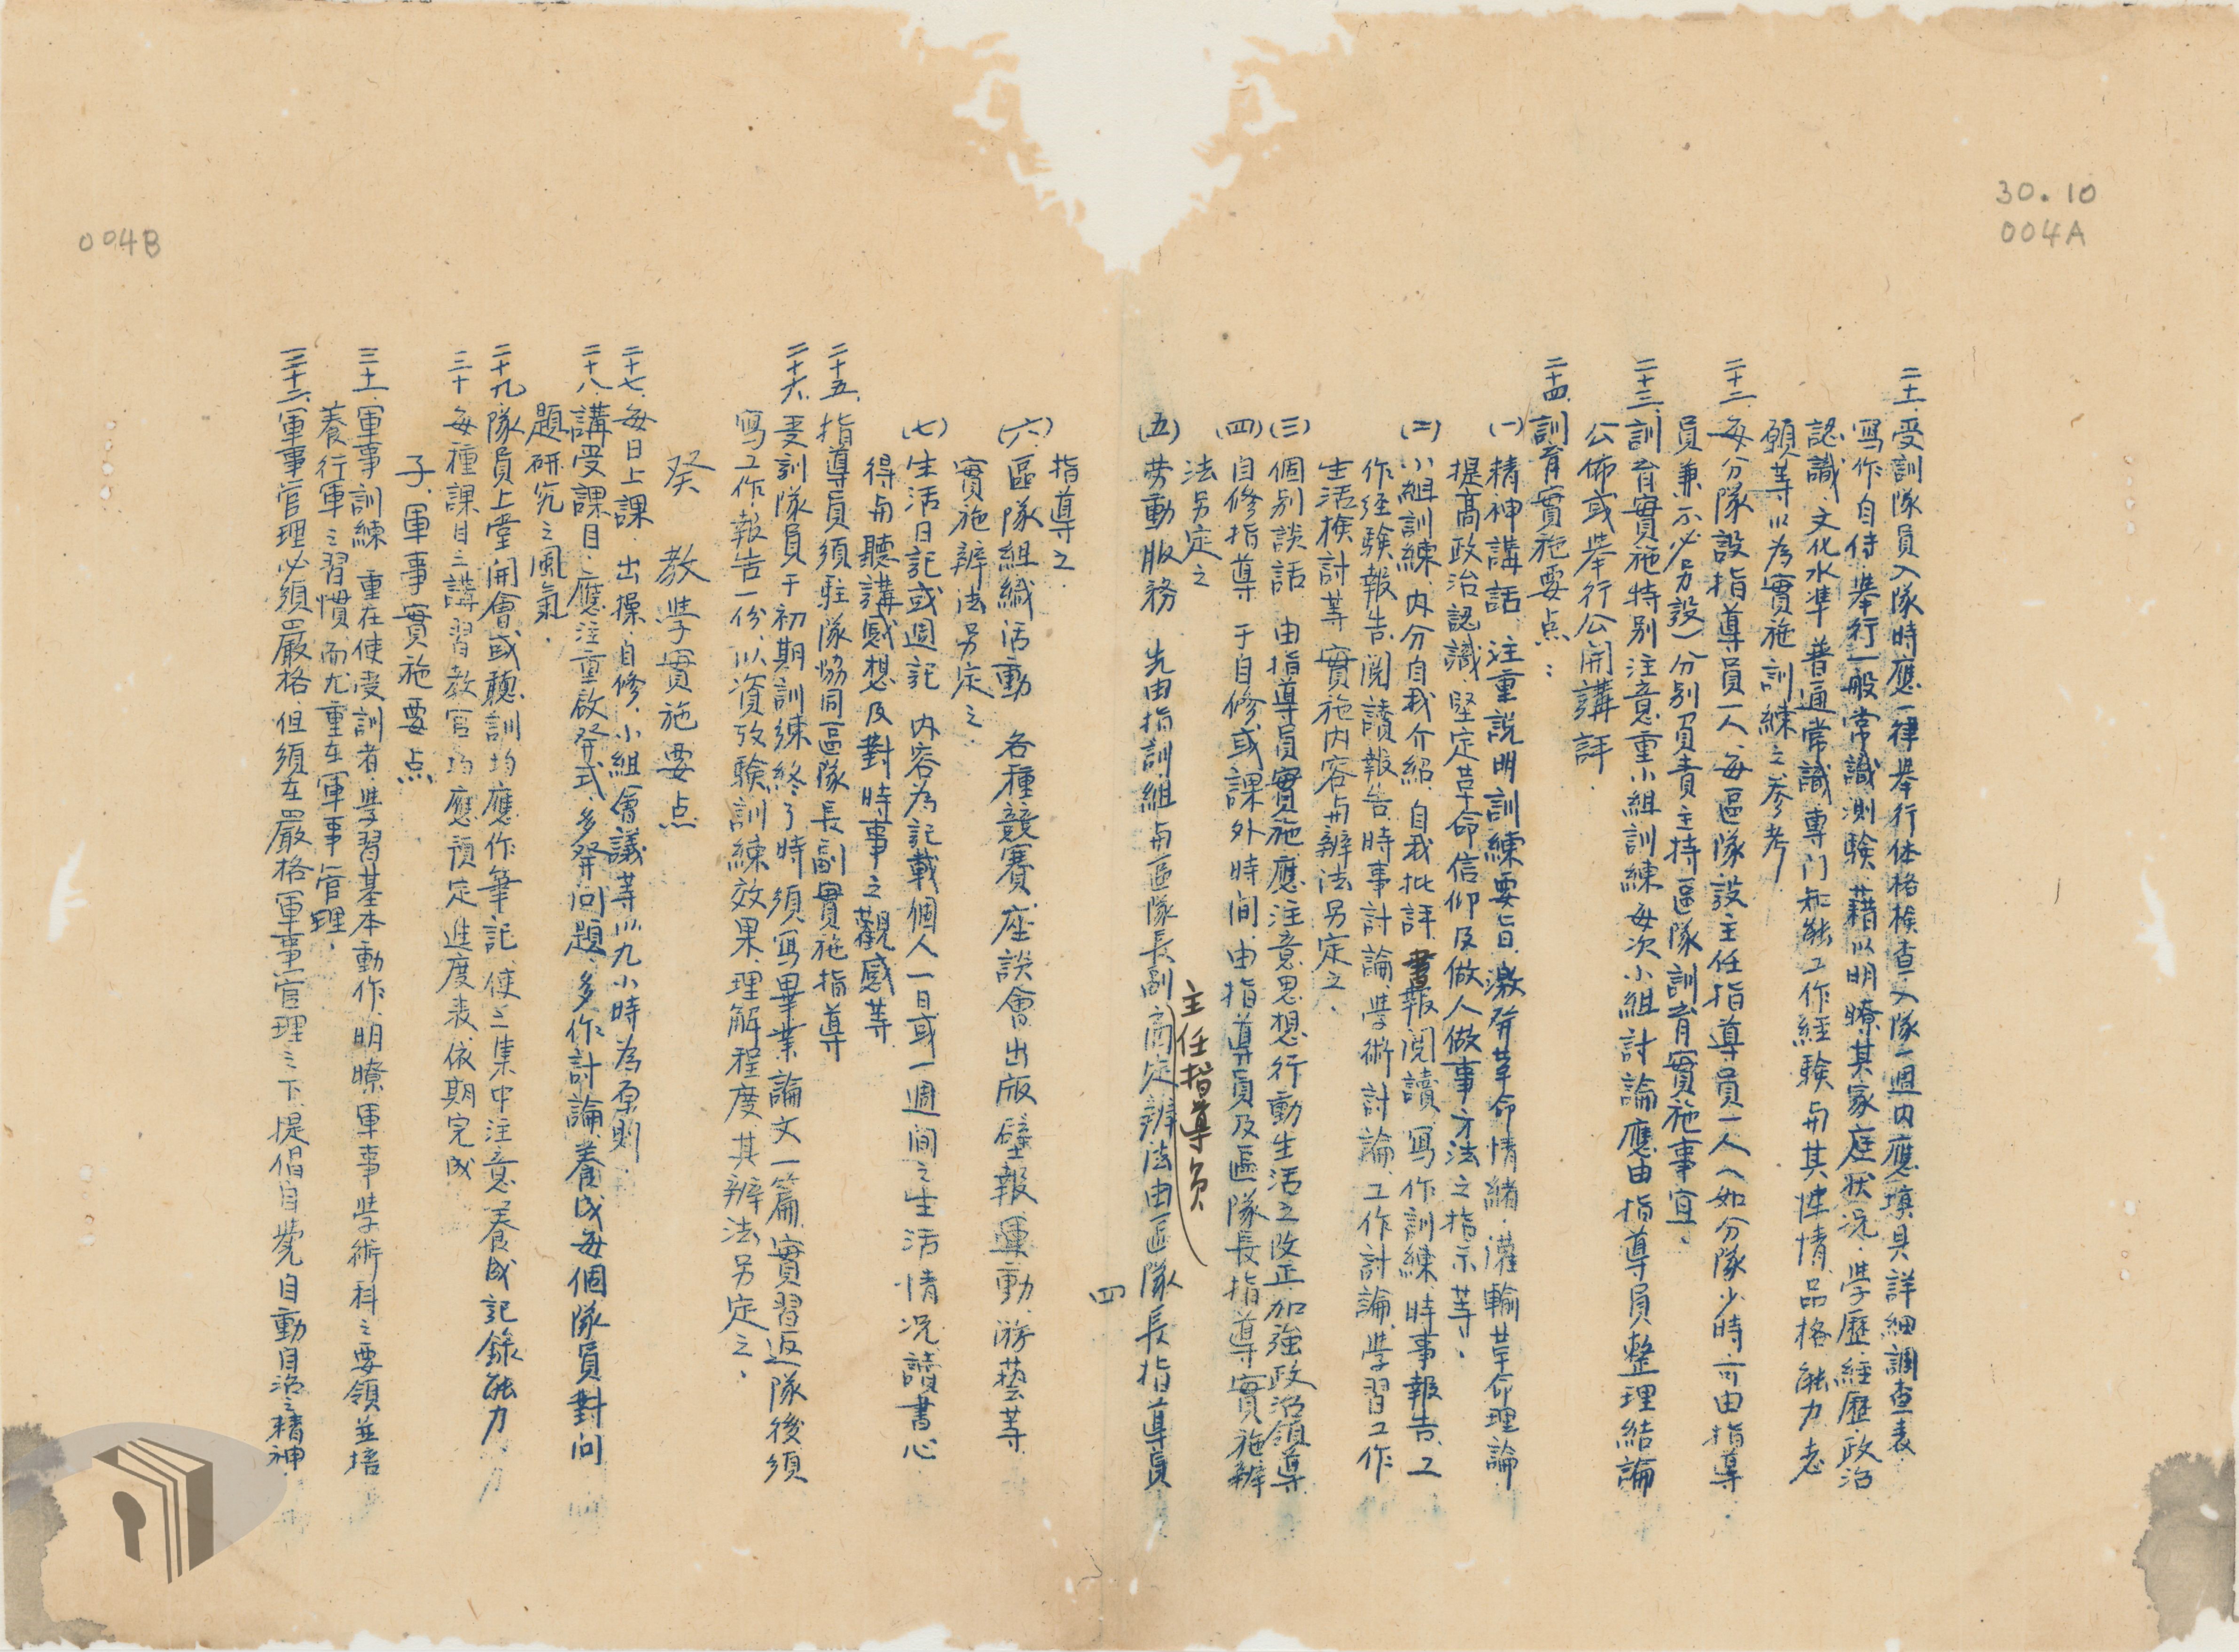 30.10
004A
二十一、受訓隊員入隊時應一律举行体格檢查、入隊一週内應填具詳細調查表、
寫作自傳、举行一般常識測驗、藉以明瞭其家庭狀况、学歷、經歷、政治
認識、文化水準、普通常識、專门知能、工作經驗与其性情、品格、能力、志
願等以為實施訓練之參考
二十二、每分隊設指導員一人、每區隊設主任指導員一人（如分隊少時亦由指導
員兼不必另設）分别负責主持區隊訓育實施事宜、
二十三、訓育實施特别注意重小組訓練每次小組討論應由指導員整理結論
公佈或举行公開講評、
二十四、訓育實施要点：
(一)精神講話、注重説明訓練要旨、激發革命情緒、灌輸革命理論
提高政治認識、堅定革命信仰及做人做事方法之指示等、
(二)小組訓練、内分自我介紹、自我批評、書報阅讀、寫作訓練、時事報告、工
作经驗報告、閲讀報告、時事討論、学術討論、工作討論、学習工作
生活檢討等實施内容与辦法另定之、
(三)個别談話、由指導員實施、應注意思想行動生活之改正、加強政治領導
(四)自修指導、于自修或課外時间、由指導員及區隊長指導實施、辦
法另定之
(五)劳動服務、先由指訓組与區隊長副商定辦法由區隊長指導員
主任指導員
四
指導之、
(六)區隊組織活動、各種競賽、座談會、出版壁報、運動、游藝等、
實施辦法另定之、
(七)生活日記或週記、内容為記載個人一日或一週间之生活情况、讀書心
得与聽講感想及對時事之觀感等
二十五、指導員須駐隊協同區隊長副實施指導
二十六、受訓隊員于初期訓練終了時、須寫畢業論文一篇、實習返隊後須
寫工作報告一份、以資攷驗訓練效果、理解程度、其辦法另定之、
癸、教学實施要点
二十七、每日上課、出操、自修、小組會議等以九小時為原則、
二十八、講受課目、應注重啟發式、多發问題、多作討論、養成每個隊員對问
題研究之風氣、
二十九、隊員上堂開會或聽訓均應作筆記、使之集中注意、養成記錄能力
三十、每種課目之講習教官均應預定進度表、依期完成
子、軍事實施要点
三十一、軍事訓練、重在使受訓者、学習基本動作、明瞭軍事学術科之要領並培
養行軍之習慣、而尤重在軍事管理、
三十二、軍事管理必須嚴格、但須在嚴格軍事管理之下、提倡自覺自動自治之精神、
004B